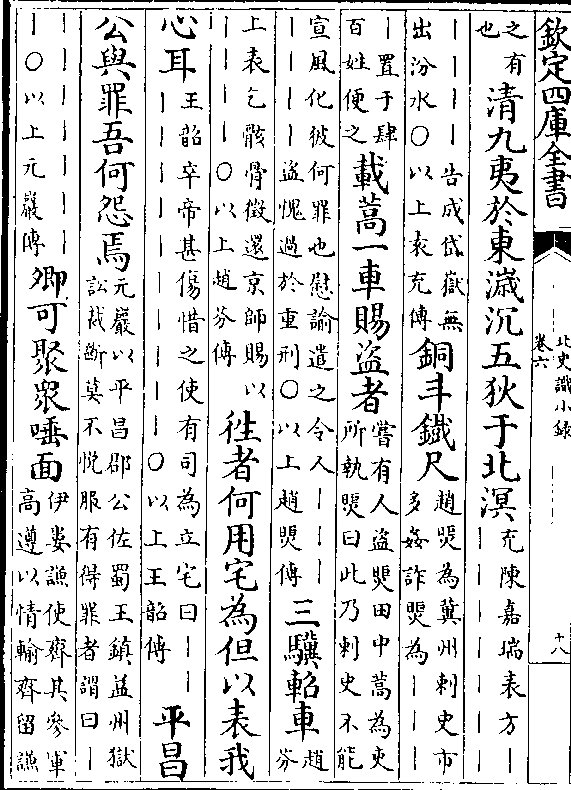 欽定四庫全書
北史識小錄
卷六
十八
之有
也
清九夷於東濊沉五狄于北溟
充陳嘉瑞表方｜
｜｜｜｜｜｜｜
｜｜｜｜告成岱嶽無
出汾水○以上袁充傳
銅斗鐵尺
趙煚為冀州刺史市
多姦詐煚為｜｜｜
｜置于肆
百姓便之
載蒿一車賜盗者
嘗有人盗煚田中蒿為吏
所執煚曰此乃刺史不能
宣風化彼何罪也慰諭遣之令人｜｜｜
｜｜｜盗愧過於重刑○以上趙煚傳
三驥軺車
趙
芬
上表乞骸骨徵還京師賜以
｜｜｜｜○以上趙芬傳
徃者何用宅為但以表我
心耳
王韶卒帝甚傷惜之使有司為立宅曰｜｜
｜｜｜｜｜｜｜｜｜○以上王韶傳
平昌
公與罪吾何怨焉
元巖以平昌郡公佐蜀王鎮益州獄
訟裁斷莫不悦服有得罪者謂曰｜
｜｜｜｜｜｜｜
｜○以上元巖傳
卿可聚衆唾面
伊婁謙使齊其參軍
高遵以情輸齊留謙